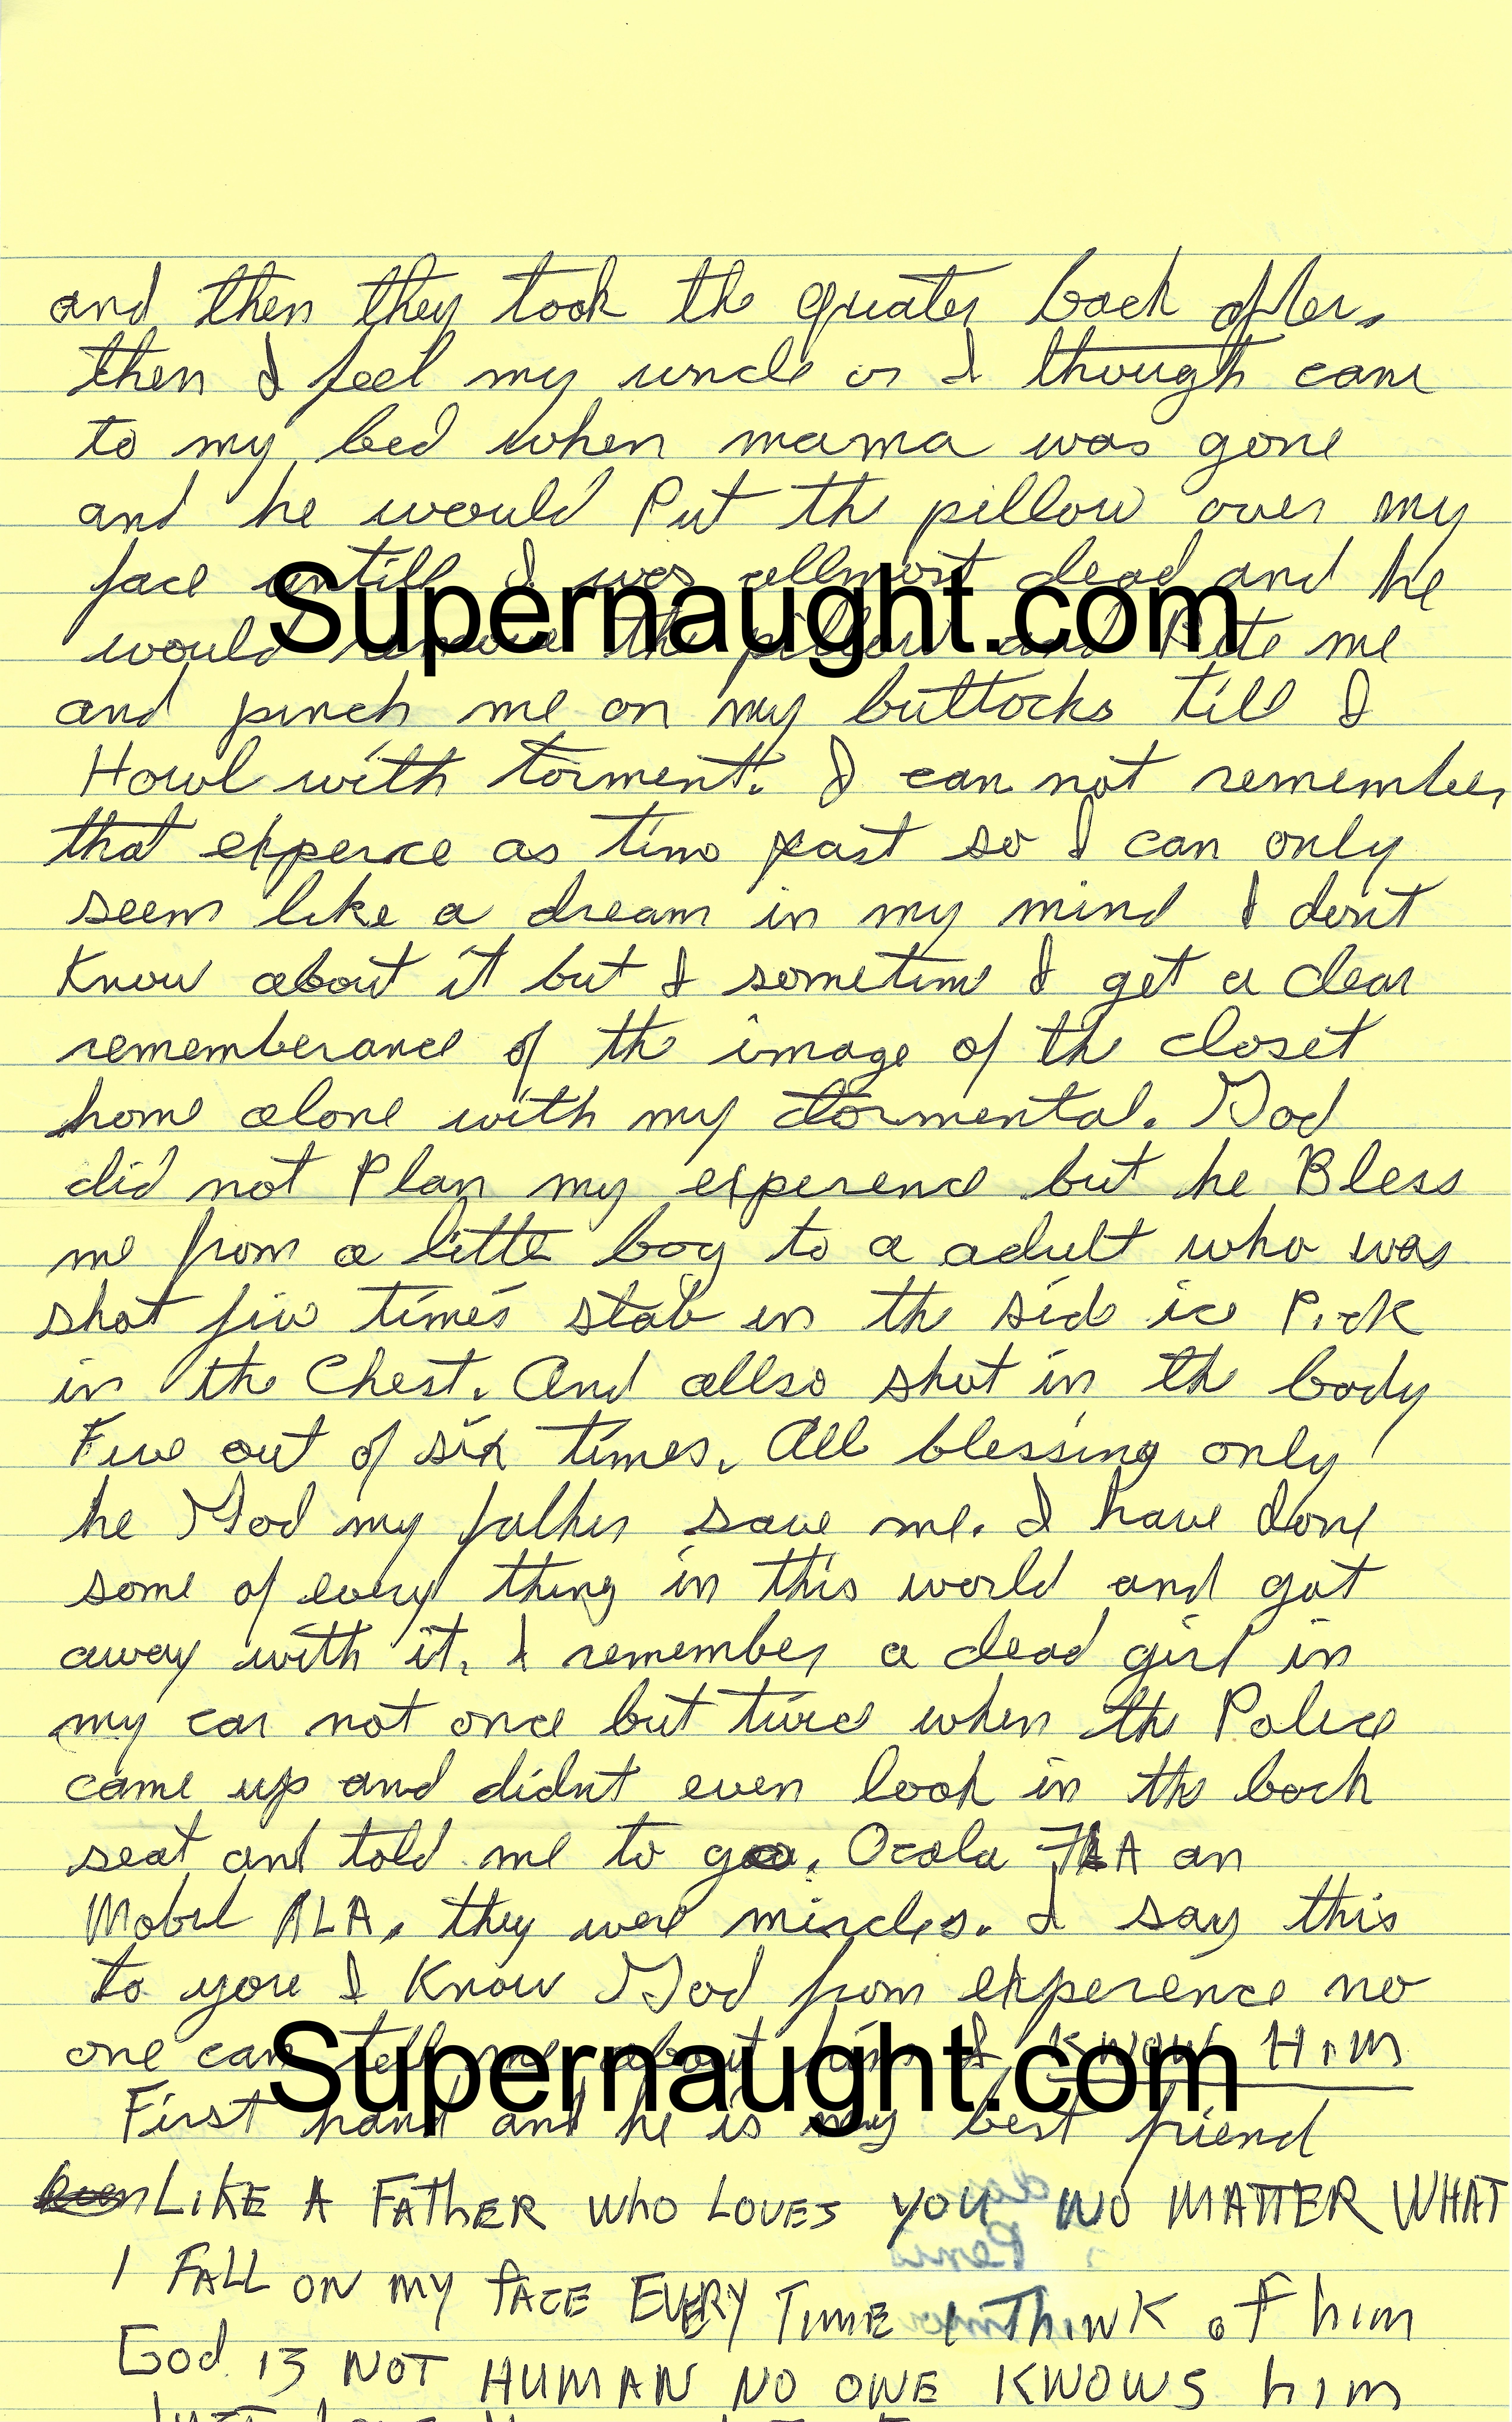 and then they took th quater back after.
then I feel my uncle or I though came
to my bed when mama was gone
and he would Put th pillow over my
face untill I was allmost dead and he
Supernaught.com
would remove th pillow and Bite me
and pinch me on my buttocks till I
Howl with torment. I can not remember
that experce as time past so I can only
seem like a dream in my mind I dont
Know about it but I sometime I get a clear
rememberance of th image of th closet
home alone with my tormental. God
did not Plan my experence but he Bless
me from a little boy to a adult who was
shot five times stab in th side ice Pick
in th Chest. And allso shot in th body
Five out of six times. All blessing only
he God my father save me. I have done
some of every thing in this world and got
away with it. I remember a dead girl in
my car not once but twice when th Police
came up and didnt even look in th back
seat and told me to go. Ocala FLA an
Mobul ALA. they were miracles. I say this
to you I Know God from experence no
one can tell me about him I KNOW HIM
Supernaught.com
First hand and he is my best friend
LIKE A FATHER WHO LOVES YOU NO MATTER WHAT
I FALL ON MY FACE EVERY TIME I THINK of him
God IS NOT HUMAN NO ONE KNOWS him